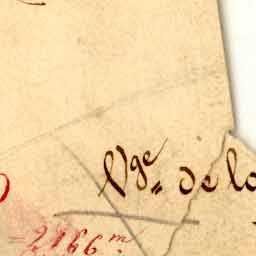 Vge. de la
= 2166 m